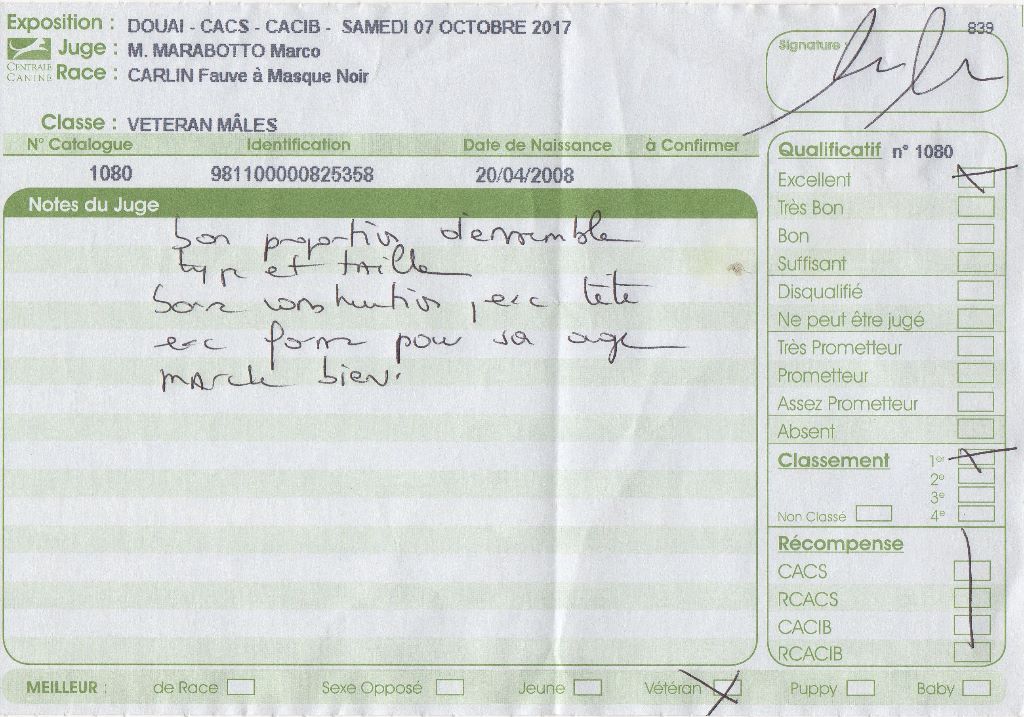 Exposition : DOUAI - CACS - CACIB - SAMEDI 07 OCTOBRE 2017
839
Juge : M. MARABOTTO Marco
Signature :
CENTRALE CANINE
Race : CARLIN Fauve à Masque Noir
Classe : VETERAN MÂLES
N° Catalogue Identification Date de Naissance à Confirmer
1080 981100000825358 20/04/2008
Notes du Juge
bon proportion d'ensemble
type et taille
bonne construction, exc tête
exc forme pour sa age
marche bien.
Qualificatif n° 1080
Excellent
Très Bon
Bon
Suffisant
Disqualifié
Ne peut être jugé
Très Prometteur
Prometteur
Assez Prometteur
Absent
Classement 1er
2e
3e
Non Classé 4e
Récompense
CACS
RCACS
CACIB
RCACIB
MEILLEUR : de Race Sexe Opposé Jeune Vétéran Puppy Baby